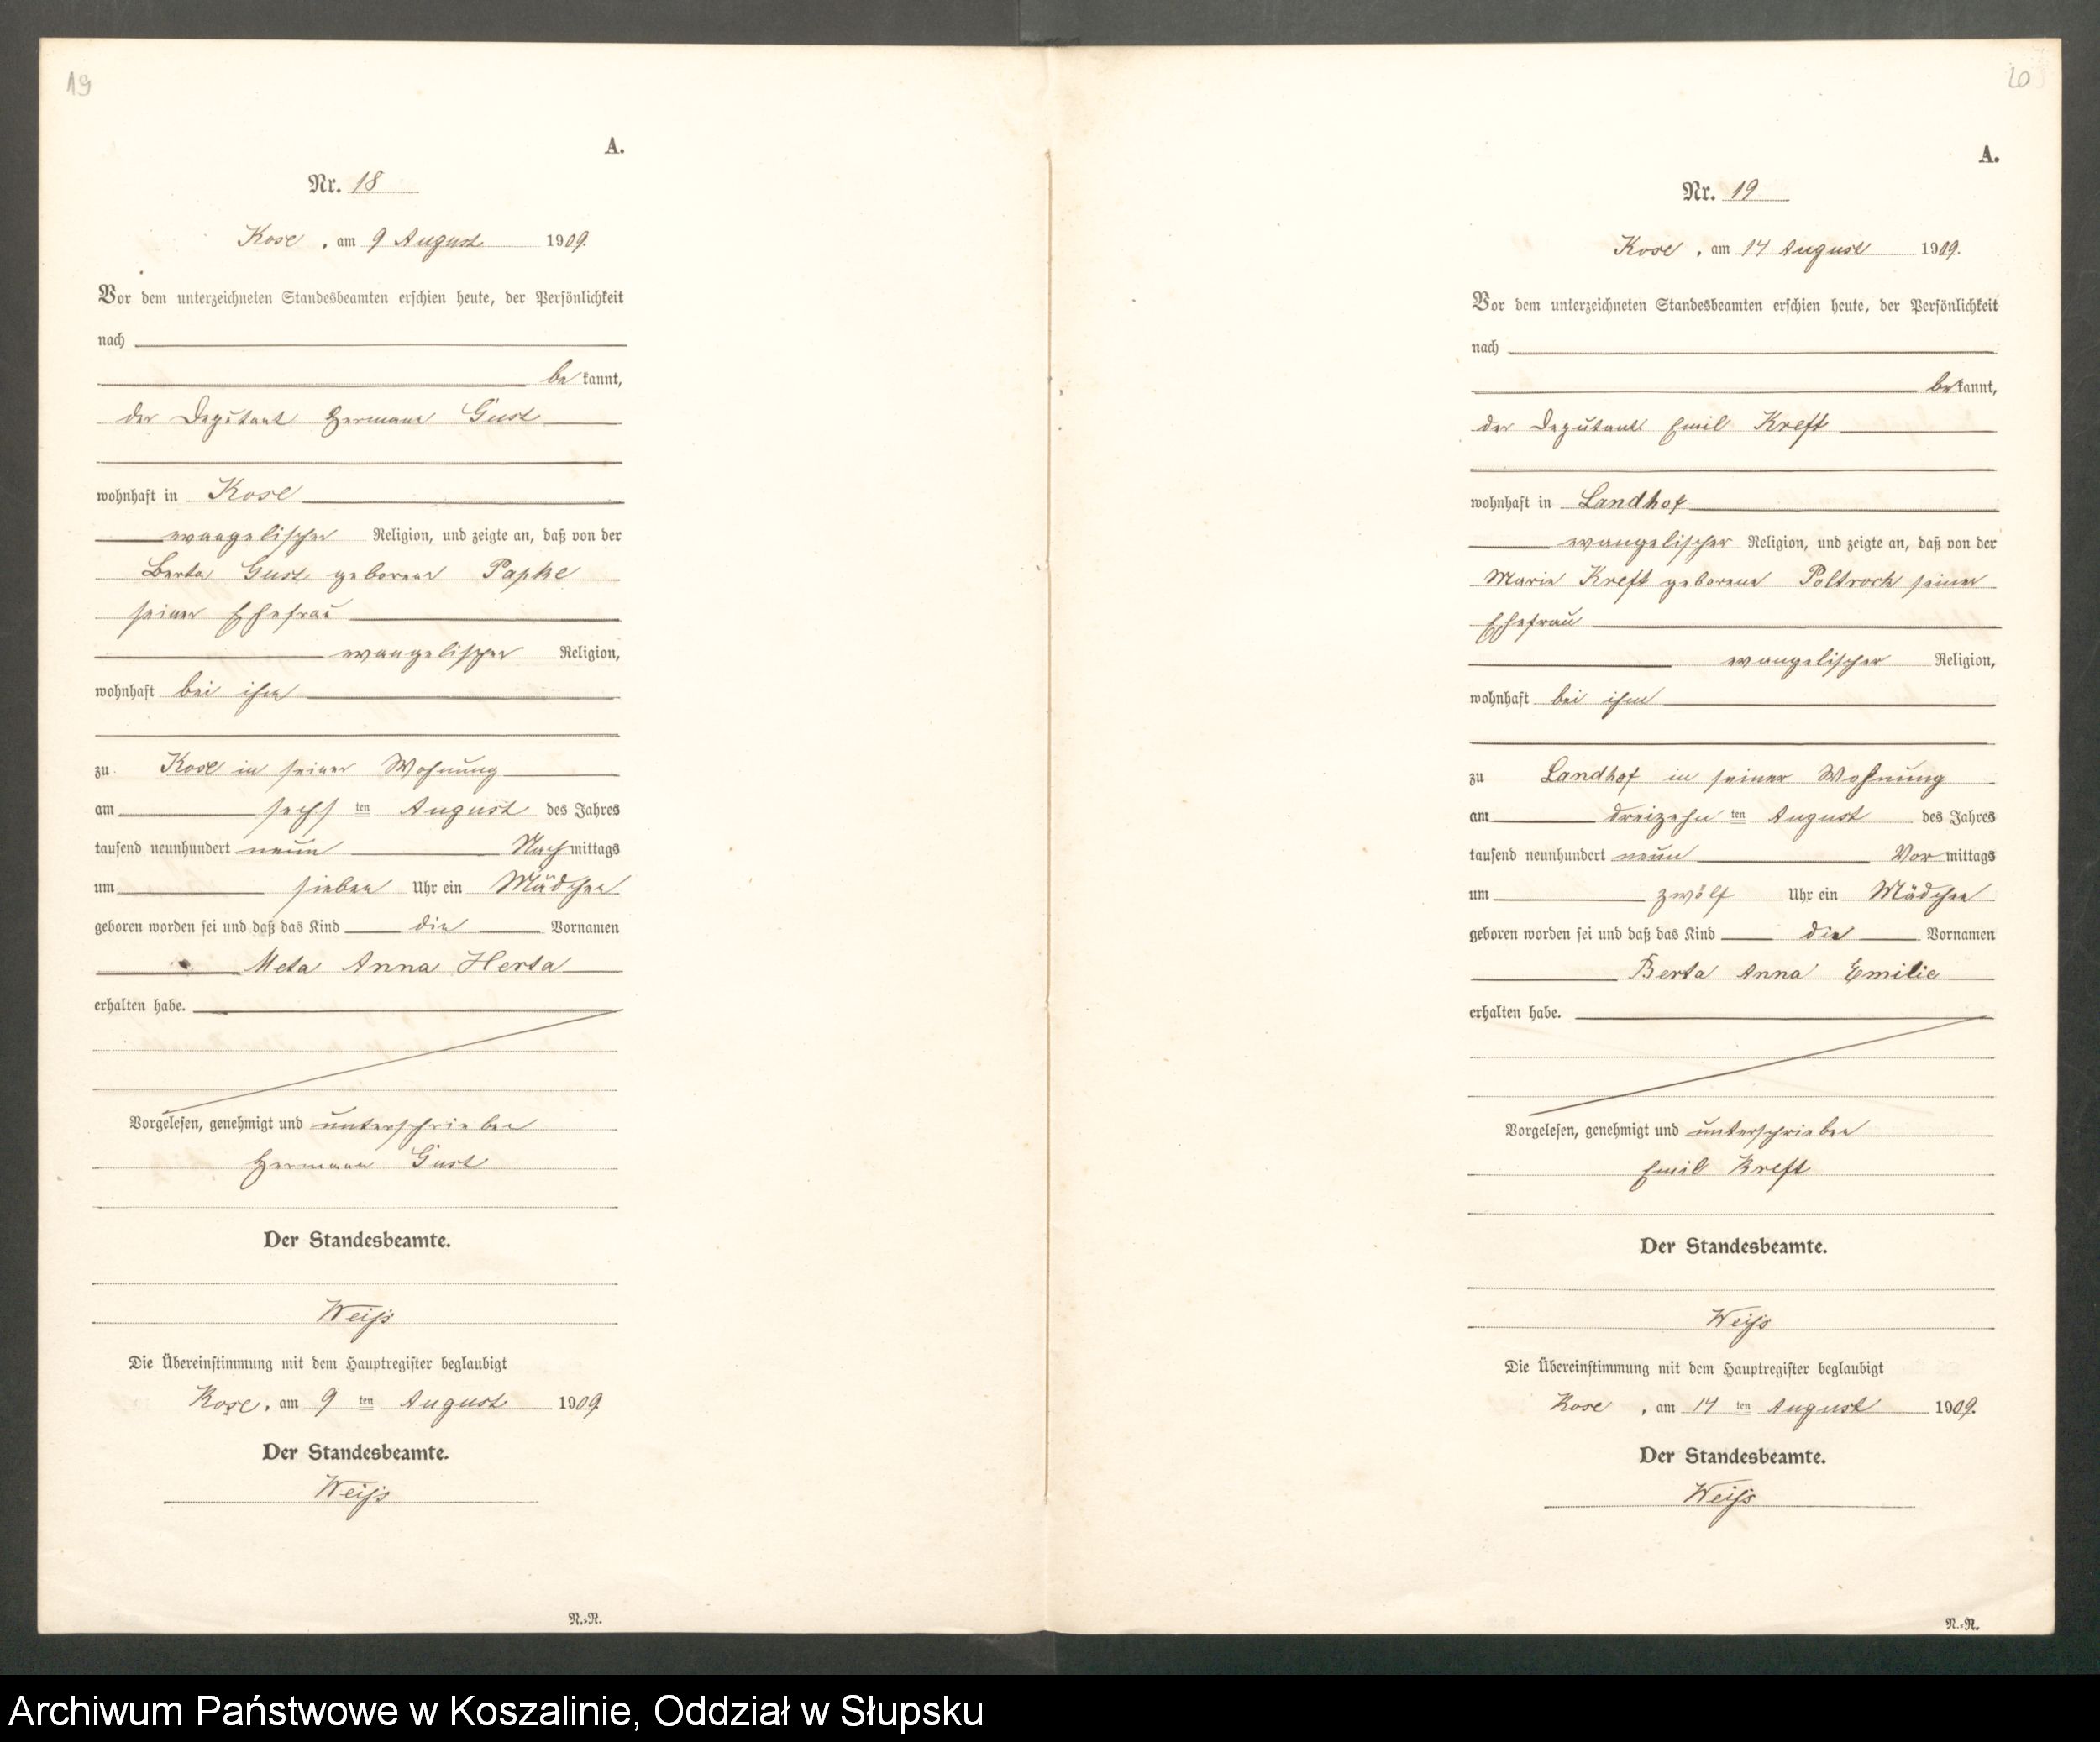 19
A.
Nr. 18
Kose, am 9 August 1909.
Vor dem unterzeichneten Standesbeamten erschien heute, der Persönlichkeit
nach
bekannt,
der Deputant Hermann Gust
wohnhaft in Kose
evangelischer Religion, und zeigte an, daß von der
Berta Gust geborene Papke
seiner Ehefrau
evangelischer Religion,
wohnhaft bei ihm
zu Kose in seiner Wohnung
am sechsten August des Jahres
tausend neunhundert neun Nachmittags
um sieben Uhr ein Mädchen
geboren worden sei und daß das Kind die Vornamen
Meta Anna Herta
erhalten habe.
Vorgelesen, genehmigt und unterschrieben
Hermann Gust
Der Standesbeamte.
Weiss
Die Übereinstimmung mit dem Hauptregister beglaubigt
Kose, am 9 ten August 1909
Der Standesbeamte.
Weiss
N.-N.
20
A.
Nr. 19
Kose, am 14 August 1909.
Vor dem unterzeichneten Standesbeamten erschien heute, der Persönlichkeit
nach
bekannt,
der Deputant Emil Kreft
wohnhaft in Landhof
evangelischer Religion, und zeigte an, daß von der
Marie Kreft geborene Poltrock seiner
Ehefrau
evangelischer Religion,
wohnhaft bei ihm
zu Landhof in seiner Wohnung
am dreizehnten August des Jahres
tausend neunhundert neun Vormittags
um zwölf Uhr ein Mädchen
geboren worden sei und daß das Kind die Vornamen
Berta Anna Emilie
erhalten habe.
Vorgelesen, genehmigt und unterschrieben
Emil Kreft
Der Standesbeamte.
Weiss
Die Übereinstimmung mit dem Hauptregister beglaubigt
Kose, am 14 ten August 1909.
Der Standesbeamte.
Weiss
N.-N.
Archiwum Państwowe w Koszalinie, Oddział w Słupsku